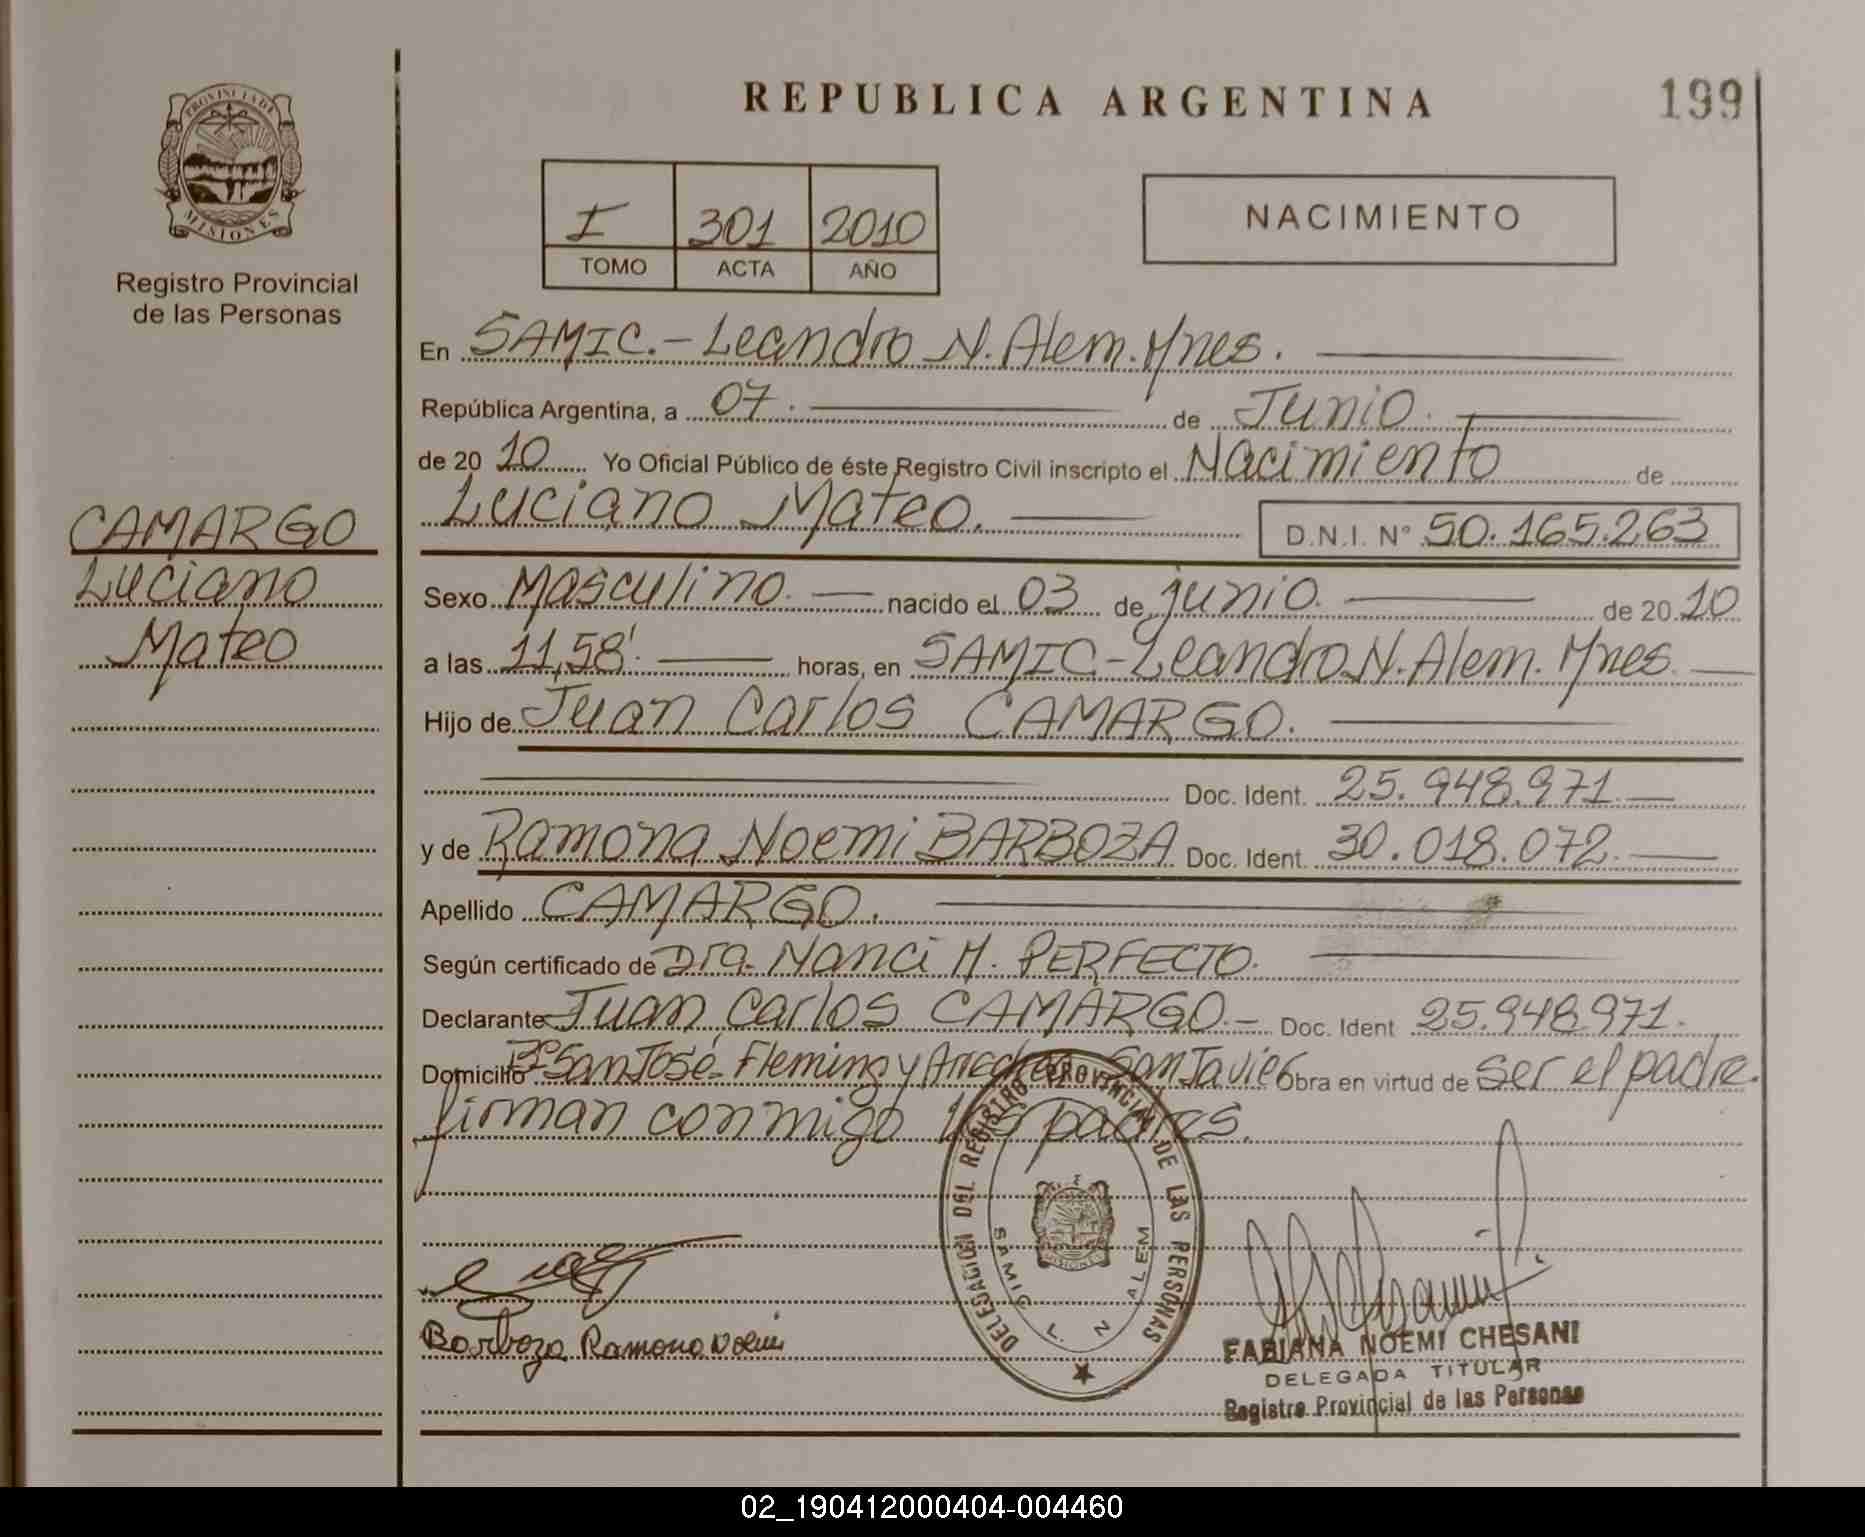 REPUBLICA ARGENTINA
199
PROVINCIA DE
MISIONES
Registro Provincial
de las Personas
I 301 2010
TOMO ACTA AÑO
NACIMIENTO
En SAMIC.- Leandro N. Alem. Mnes.
República Argentina, a 07. de Junio.
de 20 10 Yo Oficial Público de éste Registro Civil inscripto el Nacimiento de
Luciano Mateo. D.N.I. N° 50.165.263
CAMARGO
Luciano
Mateo
Sexo Masculino. nacido el 03 de junio. de 20 10
a las 11,58'. horas, en SAMIC-Leandro N. Alem. Mnes.
Hijo de Juan Carlos CAMARGO.
Doc. Ident. 25.948.971.
y de Ramona Noemi BARBOZA Doc. Ident. 30.018.072.
Apellido CAMARGO.
Según certificado de Dra. Nanci M. PERFECTO.
Declarante Juan Carlos CAMARGO.- Doc. Ident 25.948.971.
Domicilio B° San José. Fleming y San Javier Obra en virtud de ser el padre.
firman conmigo los padres.
DELEGACION DEL REGISTRO PROVINCIAL DE LAS PERSONAS
SAMIC L. N ALEM
MISIONES
Barboza Ramona Noemi
FABIANA NOEMI CHESANI
DELEGADA TITULAR
Registro Provincial de las Personas
02_190412000404-004460